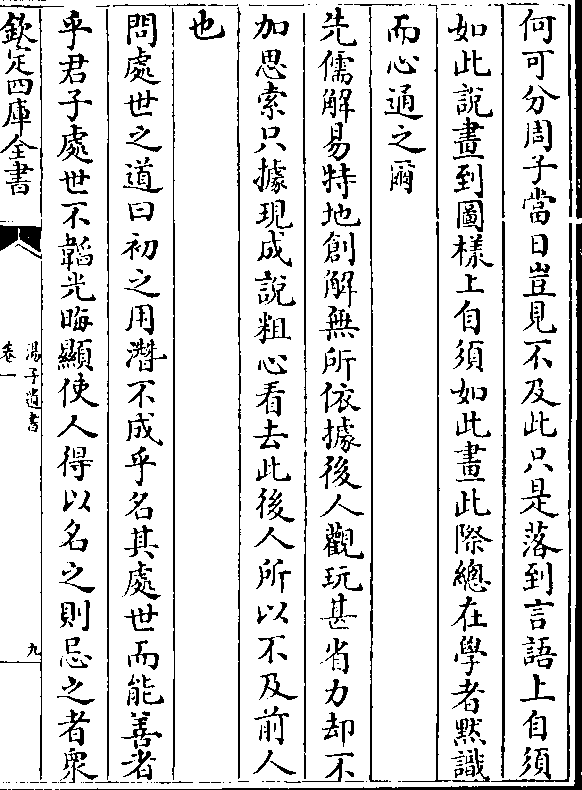 何可分周子當日豈見不及此只是落到言語上自須
如此說畫到圖樣上自須如此畫此際總在學者黙識
而心通之爾
先儒解易特地創解無所依據後人觀玩甚省力却不
加思索只據現成說粗心看去此後人所以不及前人
也
問處世之道曰初之用潛不成乎名其處世而能善者
乎君子處世不韜光晦顯使人得以名之則忌之者衆
欽定四庫全書
湯子遺書
卷一
九